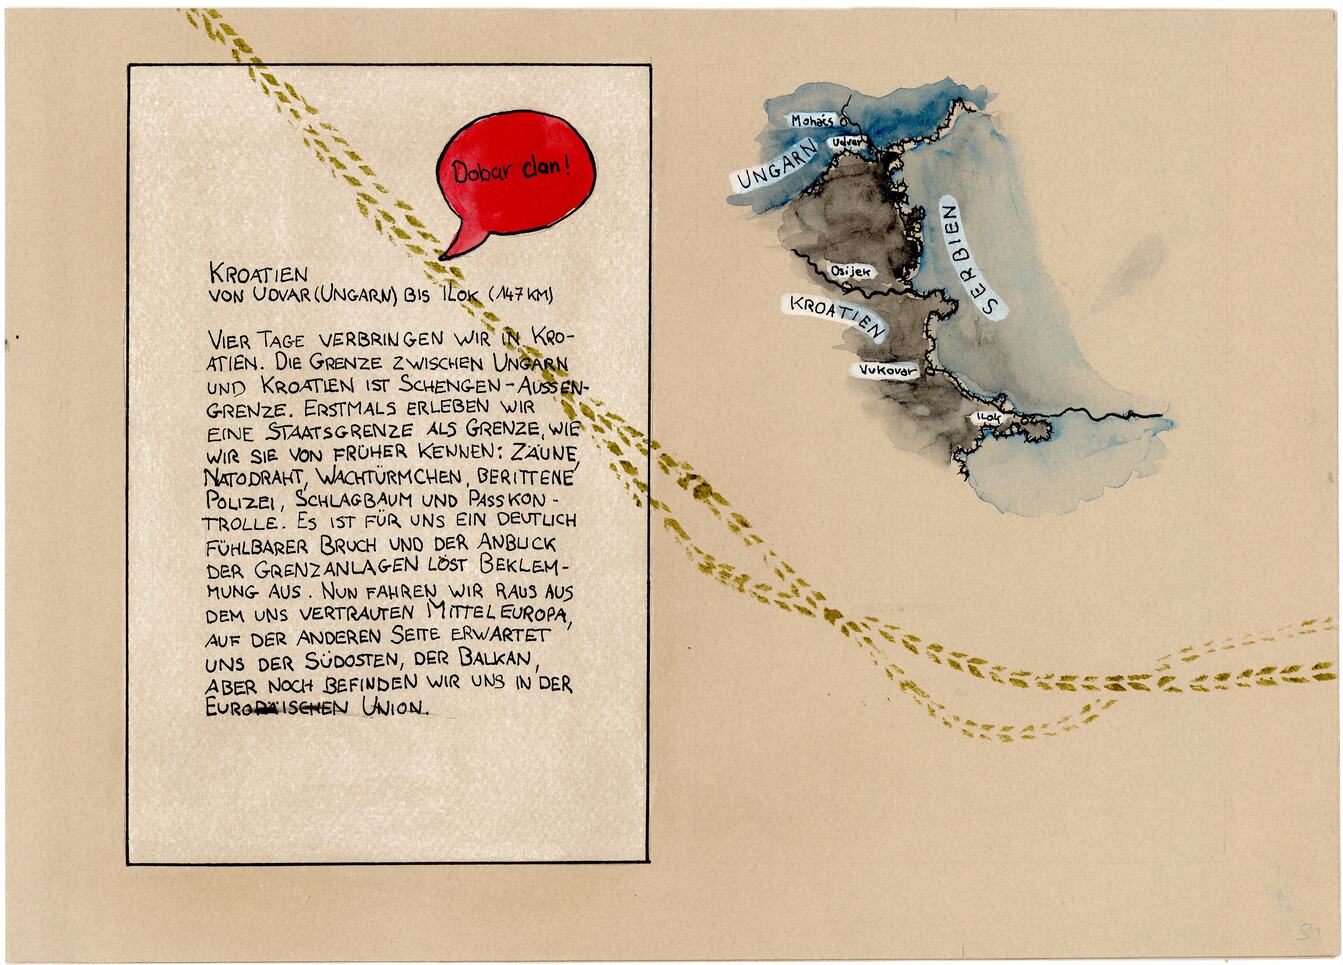 Dobar dan!
KROATIEN
VON UDVAR (UNGARN) BIS ILOK (147 KM)
VIER TAGE VERBRINGEN WIR IN KRO-
ATIEN. DIE GRENZE ZWISCHEN UNGARN
UND KROATIEN IST SCHENGEN-AUSSEN-
GRENZE. ERSTMALS ERLEBEN WIR
EINE STAATSGRENZE ALS GRENZE, WIE
WIR SIE VON FRÜHER KENNEN: ZÄUNE,
NATODRAHT, WACHTÜRMCHEN, BERITTENE
POLIZEI, SCHLAGBAUM UND PASSKON-
TROLLE. ES IST FÜR UNS EIN DEUTLICH
FÜHLBARER BRUCH UND DER ANBLICK
DER GRENZANLAGEN LÖST BEKLEM-
MUNG AUS. NUN FAHREN WIR RAUS AUS
DEM UNS VERTRAUTEN MITTELEUROPA,
AUF DER ANDEREN SEITE ERWARTET
UNS DER SÜDOSTEN, DER BALKAN,
ABER NOCH BEFINDEN WIR UNS IN DER
EUROPÄISCHEN UNION.
Mohács
Udvar
UNGARN
SERBIEN
Osijek
KROATIEN
Vukovar
ILok